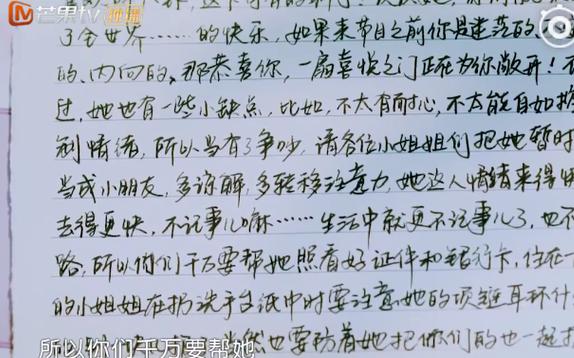 芒果TV 独播
了全世界……的快乐,如果来节目之前你是迷茫的、
的、内向的,那恭喜你,一扇喜悦之门正在为你敞开!
过,她也有一些小缺点,比如,不太有耐心,不太能自如控
制情绪,所以当有了争吵,请各位小姐姐们把她暂时
当成小朋友,多谅解,多转移注意力,她这人情绪来得快
去得更快,不记事儿嘛……生活中就更不记事儿了,也不
路,所以你们千万要帮她照看好证件和银行卡,住在一
的小姐姐在扔洗手台纸巾时要注意她的项链耳环什
当然也要防着她把你们的也一起扔
所以你们千万要帮她